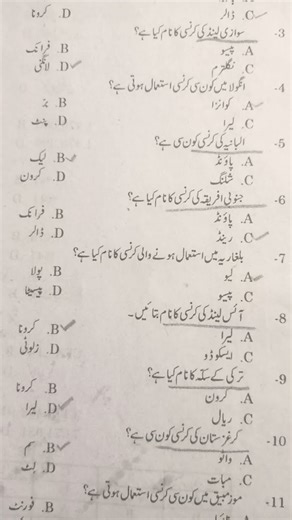 C. ڈالر D. کرونا
3- سوازی لینڈ کی کرنسی کا نام کیا ہے؟
A. پیسو B. فرانک
C. نگلترم D. لانگنی
4- انگولا میں کون سی کرنسی استعمال ہوتی ہے؟
A. کوانزا B. بز
C. لیرا D. پنٹ
5- البانیہ کی کرنسی کون سی ہے؟
A. پاؤنڈ B. لیک
C. شلنگ D. کرون
6- جنوبی افریقہ کی کرنسی کا نام کیا ہے؟
A. پاؤنڈ B. فرانک
C. رینڈ D. ڈالر
7- بلغاریہ میں استعمال ہونے والی کرنسی کا نام کیا ہے؟
A. لیو B. پولا
C. پیسو D. پیسیٹا
8- آئس لینڈ کی کرنسی کا نام بتائیں۔
A. لیرا B. کرونا
C. ایسکوڈو D. زلوٹی
9- ترکی کے سکّہ کا نام کیا ہے؟
A. کرون B. کرونا
C. ریال D. لیرا
10- کرغزستان کی کرنسی کون سی ہے؟
A. واتو B. سم
C. مبات D. لٹ
11- موزمبیق میں کون سی کرنسی استعمال ہوتی ہے؟
B. فورنٹ